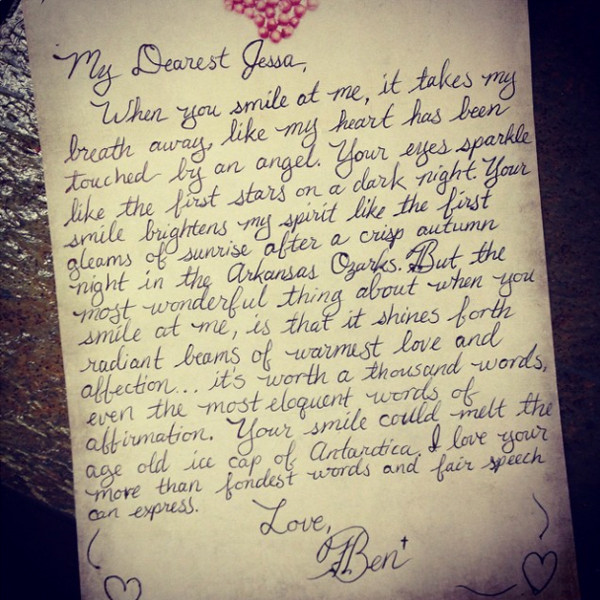 My Dearest Jessa,
When you smile at me, it takes my
breath away, like my heart has been
touched by an angel. Your eyes sparkle
like the first stars on a dark night. Your
smile brightens my spirit like the first
gleams of sunrise after a crisp autumn
night in the Arkansas Ozarks. But, the
most wonderful thing about when you
smile at me, is that it shines forth
radiant beams of warmest love and
affection... it's worth a thousand words,
even the most eloquent words of
affirmation. Your smile could melt the
age old ice cap of Antarctica. I love your
more than fondest words and fair speech
can express.
Love,
Ben